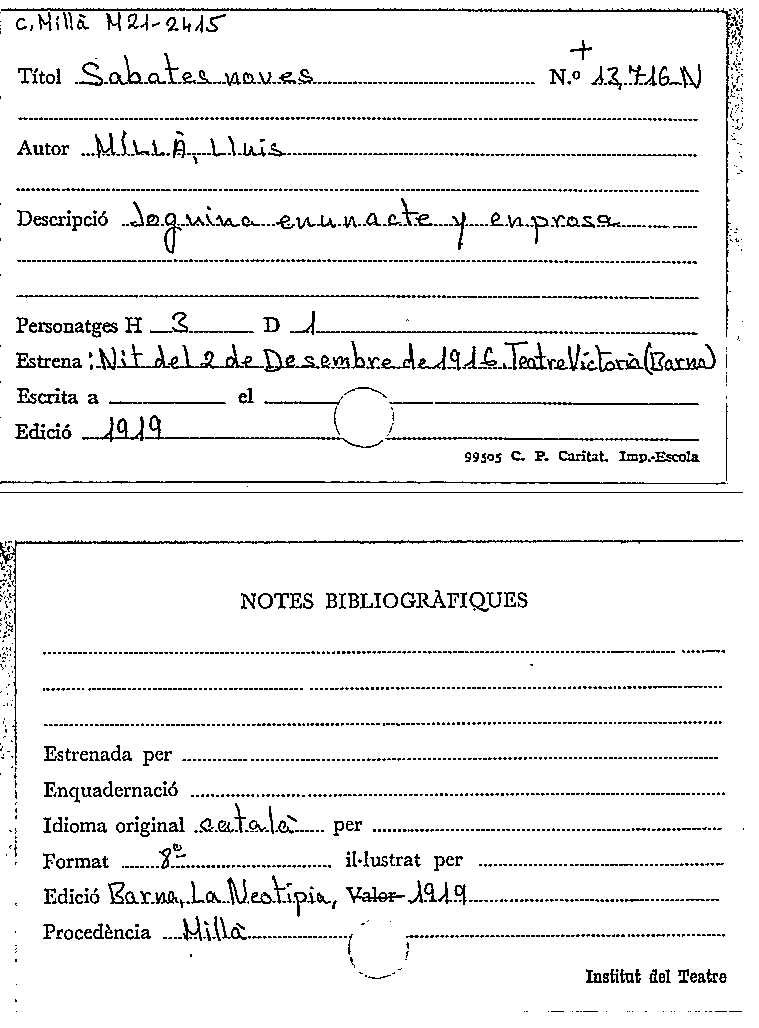 C. Millà M21-2415
+
Títol Sabates noves N.º 13,716 N
Autor MÍLLÀ, Lluis
Descripció Joguina en un acte y en prosa
Personatges H 3 D 1
Estrena: Nit del 2 de Desembre de 1916. Teatre Victoria (Barna)
Escrita a el
Edició 1919
99505 C. P. Caritat. Imp.-Escola
NOTES BIBLIOGRÀFIQUES
Estrenada per
Enquadernació
Idioma original català per
Format 8º il·lustrat per
Edició Barna, La Neotipia, Valor 1919
Procedència Millà
Institut del Teatre